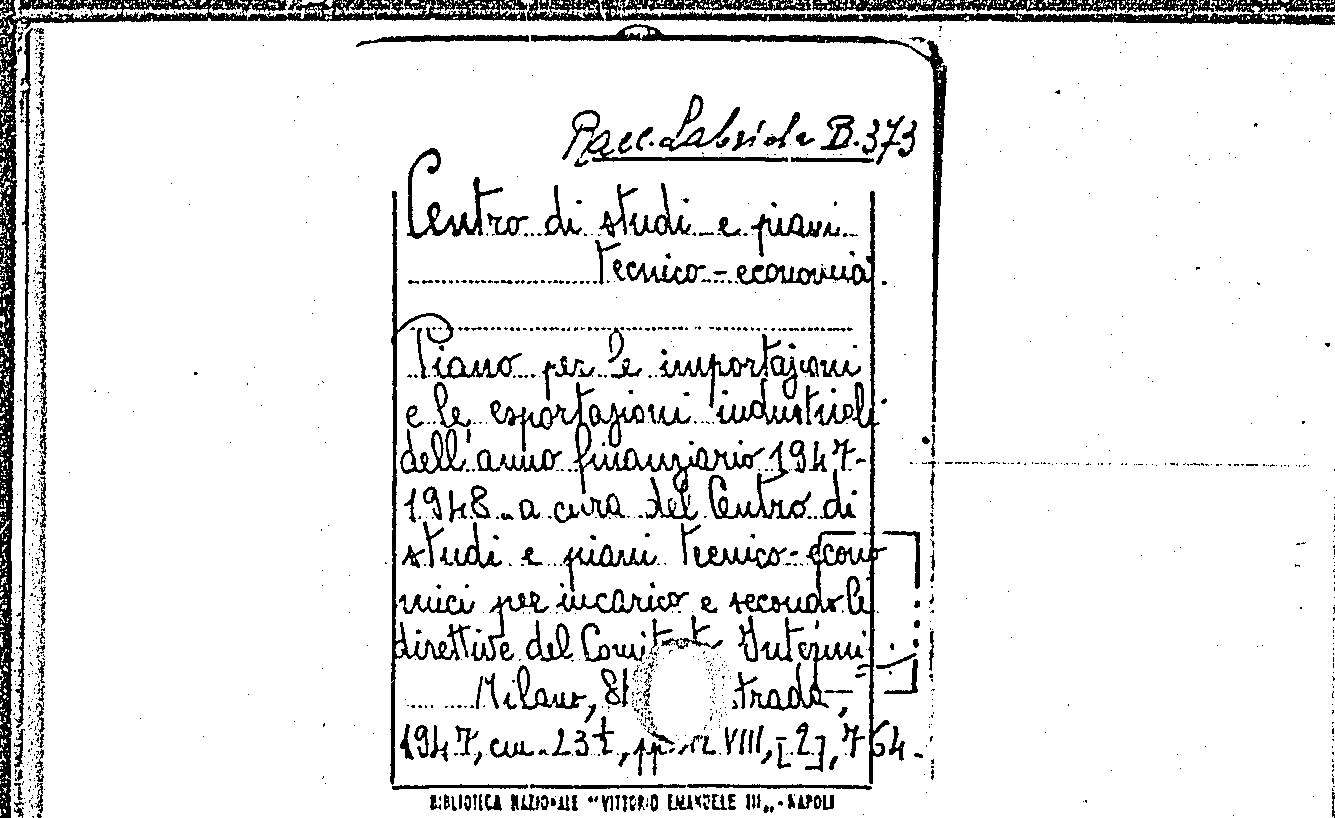 Racc. Labriola B. 373
Centro di studi e piani
tecnico-economici.
Piano per le importazioni
e le esportazioni industriali
dell'anno finanziario 1947-
1948 a cura del Centro di
studi e piani tecnico-econo
mici per incarico e secondo le
direttive del Comitato
Milano,
1947, cm. 23½, pp. VIII, [2], 764.
BIBLIOTECA NAZIONALE "VITTORIO EMANUELE III" - NAPOLI